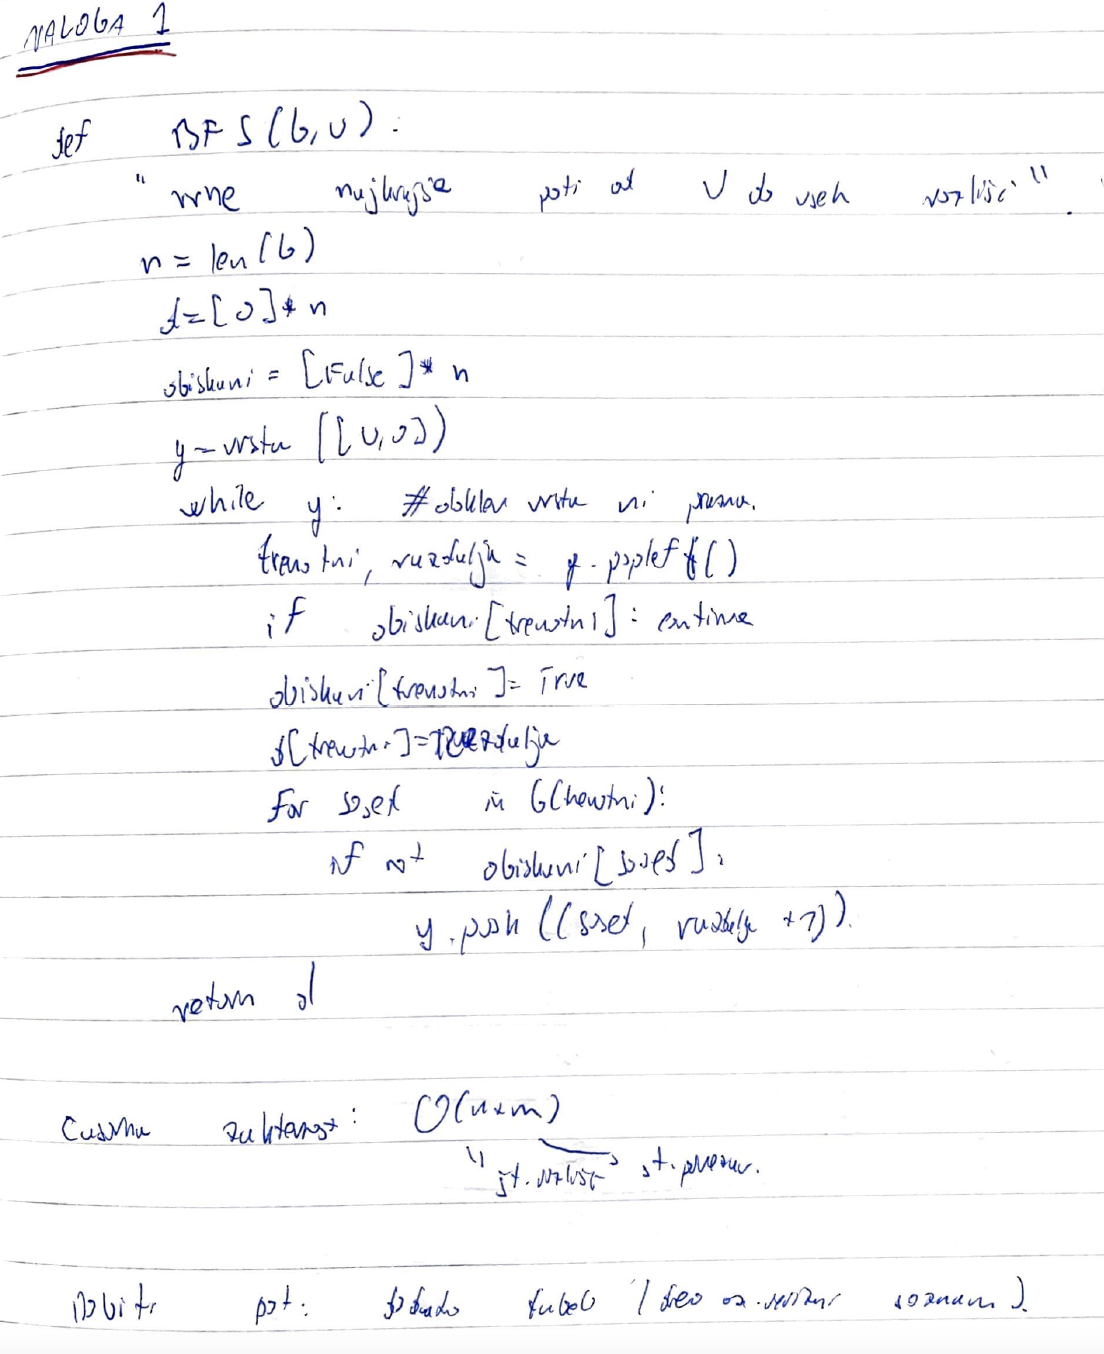 NALOGA 1
def BFS(G,u):
" vrne najkrajše poti od u do vseh vozlišč".
n = len(G)
d=[0]*n
obiskani = [False]*n
y = vrsta ([u,0])
while y: #dokler vrsta ni prazna.
trenutni, razdalja = y.popleft()
if obiskani[trenutni]: continue
obiskani[trenutni]= True
d[trenutni]=razdalja
for sosed in G(trenutni):
if not obiskani[sosed]:
y.push((sosed, razdalja +1)).
return d
Časovna zahtevnost: O(n+m)
št. vozlišč št. povezav.
Dobiti pot: tabelo seznam).